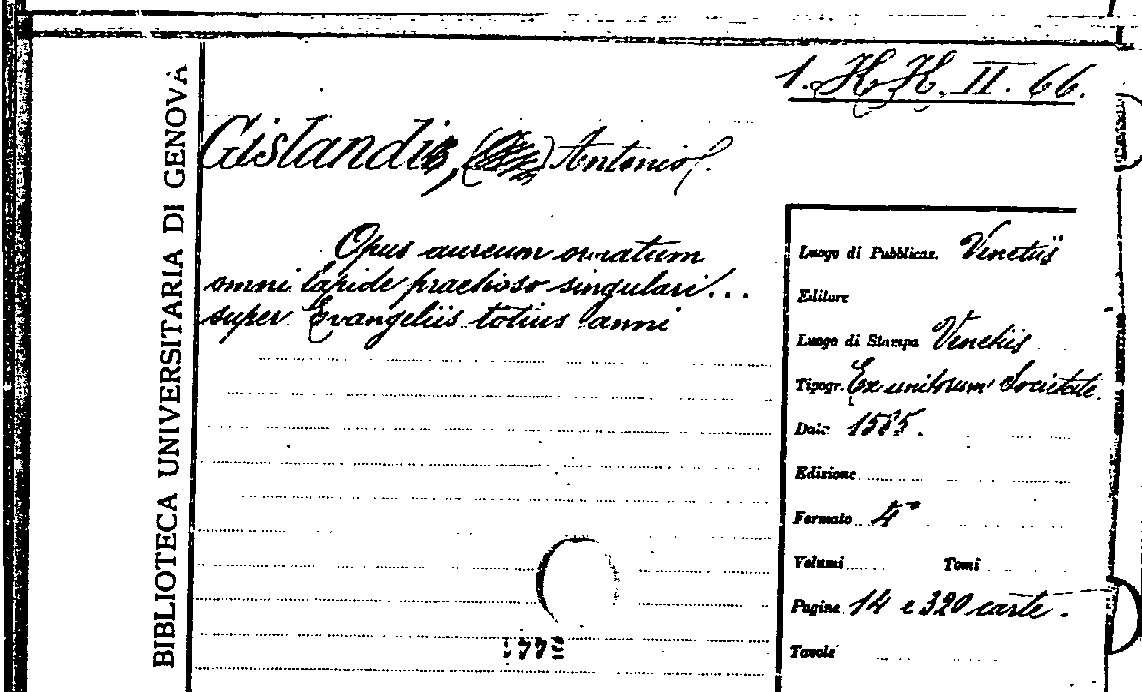 1. H. H. II. 66.
BIBLIOTECA UNIVERSITARIA DI GENOVA
Gislandis, Antonio.
Opus aureum ornatum
omni lapide praetioso singulari...
super Evangeliis totius anni
Luogo di Pubblicaz. Venetiis
Editore
Luogo di Stampa Venetiis
Tipogr. Ex unitorum Societate.
Data 1585.
Edizione
Formato 4°
Volumi Tomi
Pagine 14 e 320 carte.
Tavole